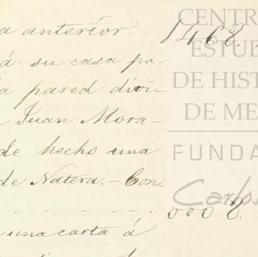 a anterior. 1468.
á su casa pa-
a pared divi
Juan Mora-
de hecho una
de Natera.- Con
0008.
una carta á
CENTR
ESTUD
DE HIST
DE ME
FUNDA
Carlos